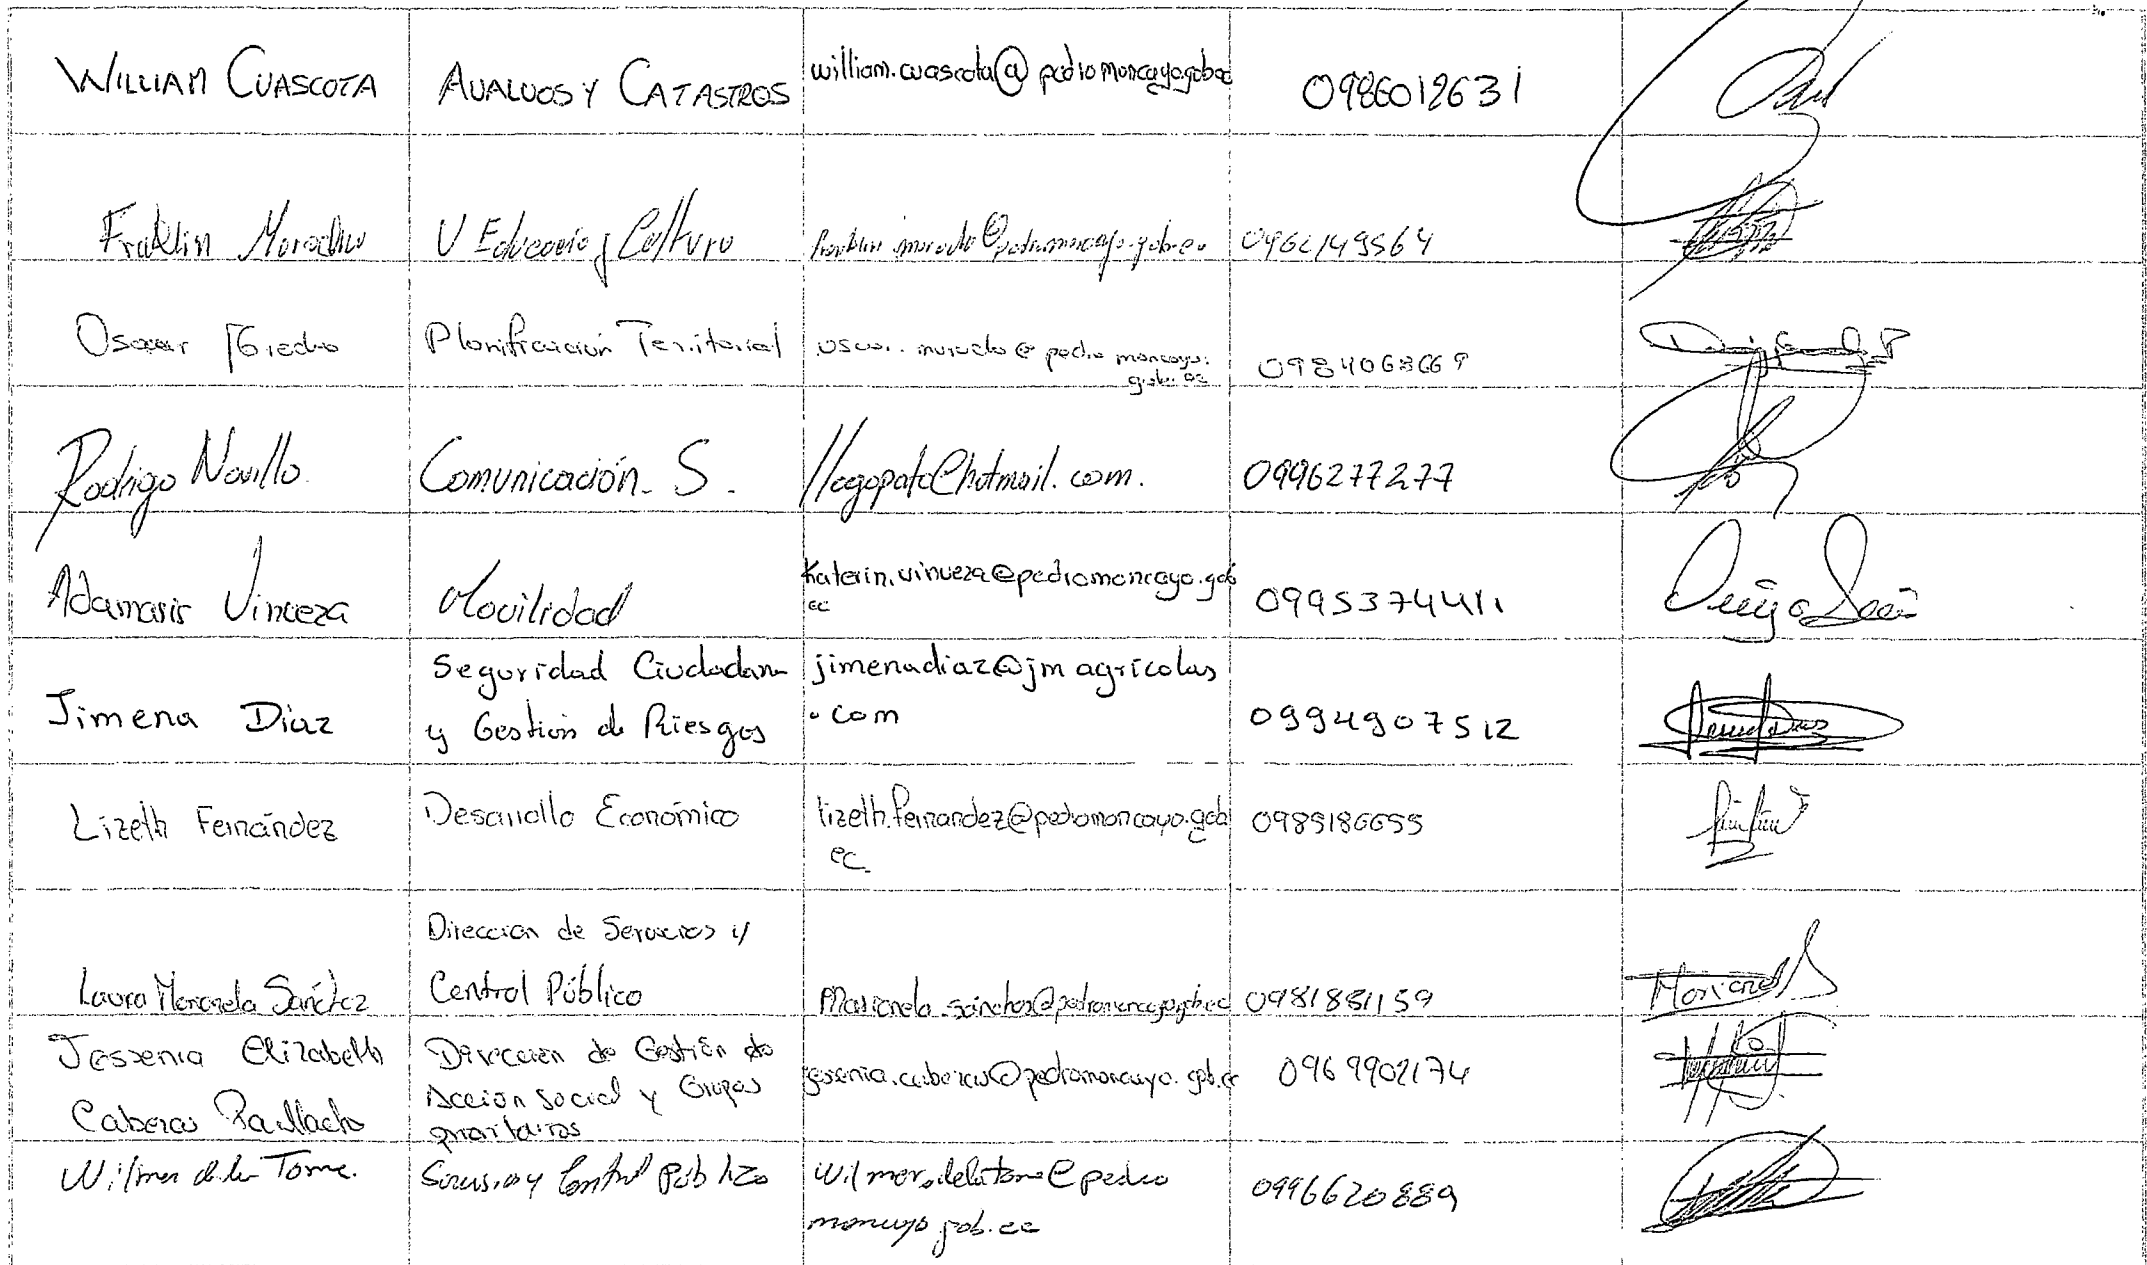 WILLIAM CUASCOTA
AVALUOS Y CATASTROS
william.cuascota@pedromoncayo.gob.ec
0986012631
Franklin Morocho
U Educación y Cultura
franklin.morocho@pedromoncayo.gob.ec
0962149564
Oscar Morocho
Planificación Territorial
oscar.morocho@pedro moncayo.
gob.ec
Rodrigo Novillo.
Comunicación. S.
llogopato@hotmail.com.
0996277277
Adamaris Vinueza
Movilidad
katerin.vinueza@pedromoncayo.gob
ec
0995374411
Jimena Díaz
Seguridad Ciudadana
y Gestión de Riesgos
jimenadiaz@jmagricolas
.com
0994907512
Lizeth Fernández
Desarrollo Económico
lizeth.fernandez@pedromoncayo.gob
ec
0985186655
Laura Marianela Sánchez
Dirección de Servicios y
Control Público
Marianela.sánchez@pedromoncayo.gob.ec
0981881159
Marianela S
Jessenia Elizabeth
Dirección de Gestión de
Acción Social y Grupos
prioritarios
0969902174
Wilmer de la Torre.
Servicios y Control Público
Wilmer.delatorre@pedro
moncayo.gob.ec
0996620889